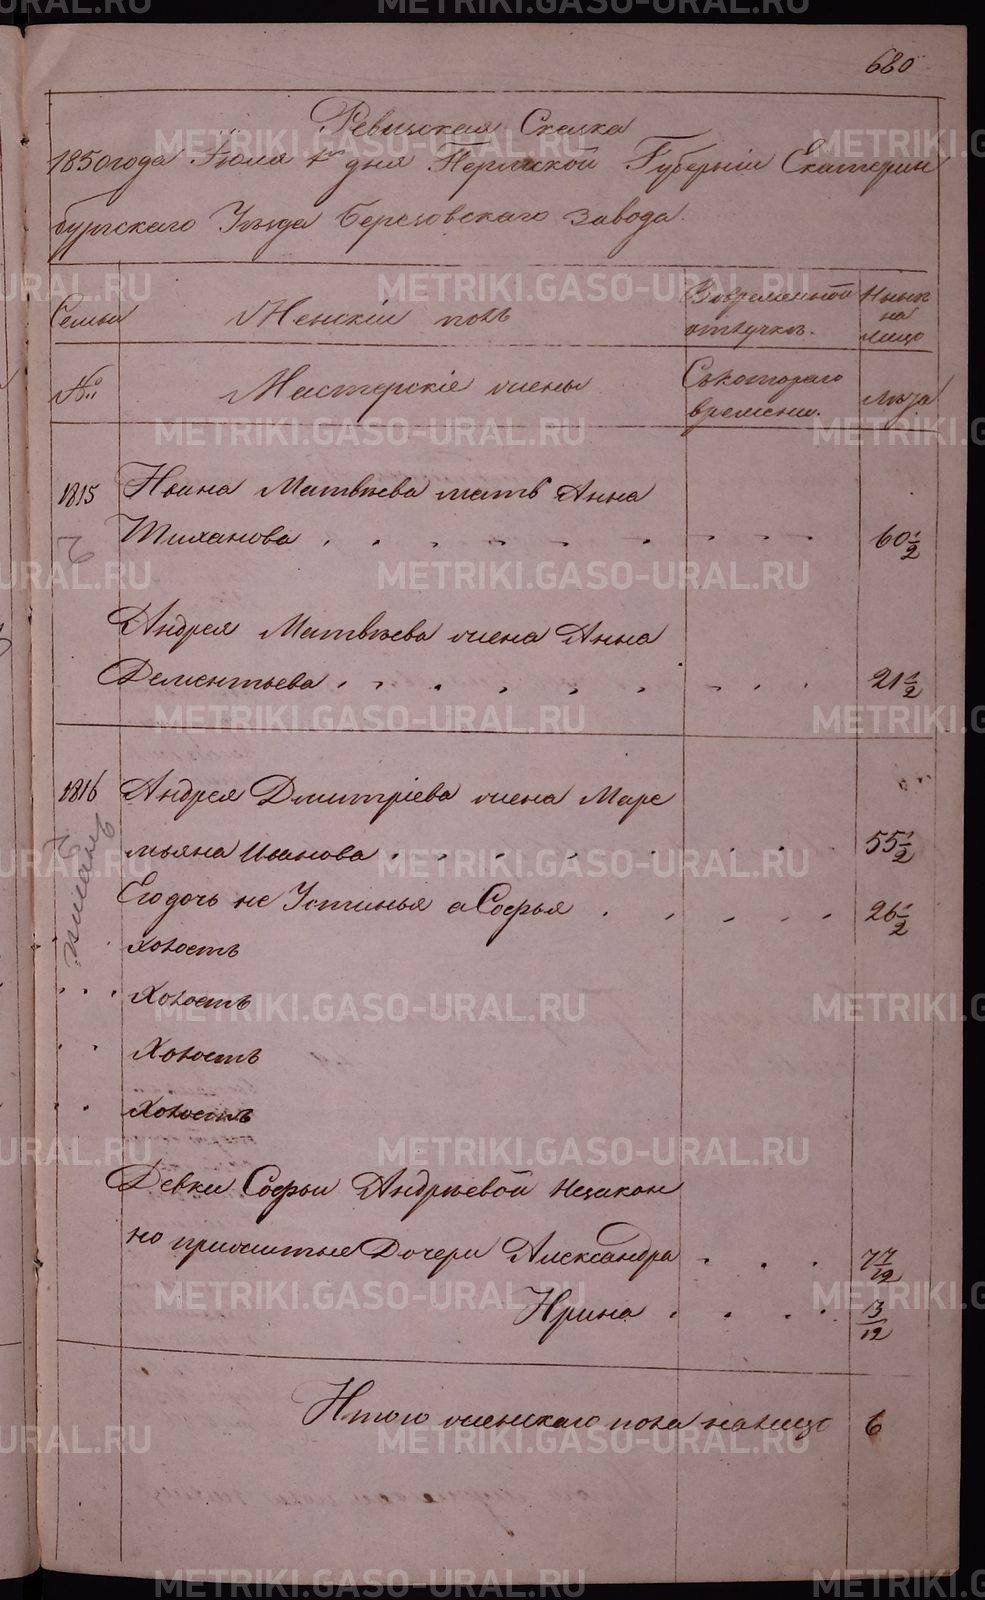 680
Ревизская Сказка
1850 года Іюля 1го дня Пермской Губерніи Екатерин
бургскаго Уѣзда Березовскаго завода.
Семьи
Женскій полъ
Вовременной отлучкѣ.
Нынѣ на лицо
№
Мастерскіе жены
Съкотораго времени.
лѣта
1815 Ивана Матвѣева мать Анна
Тиханова 60 1/2
Андрея Матвѣева жена Анна
Дементьева 21 1/2
1816 Андрея Дмитріева жена Маре
мьяна Иванова 55 1/2
Его дочь не Устинья а Софья 26 1/2
холостъ
Холостъ
Холостъ
Холостъ
Девки Софьи Андрѣевой Незакон
но прижитые Дочери Александра 7 7/12
Ирина 3/12
Итого женскаго пола налицо 6
METRIKI.GASO-URAL.RU